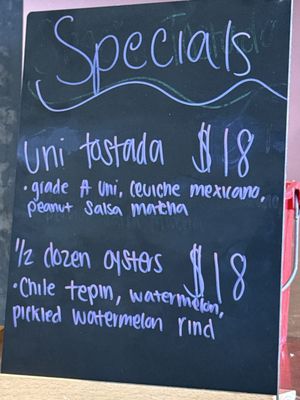 Specials
Uni tostada $18
• grade A uni, ceviche mexicano,
peanut salsa matcha
1/2 dozen oysters $18
• Chile tepin, watermelon,
pickled watermelon rind